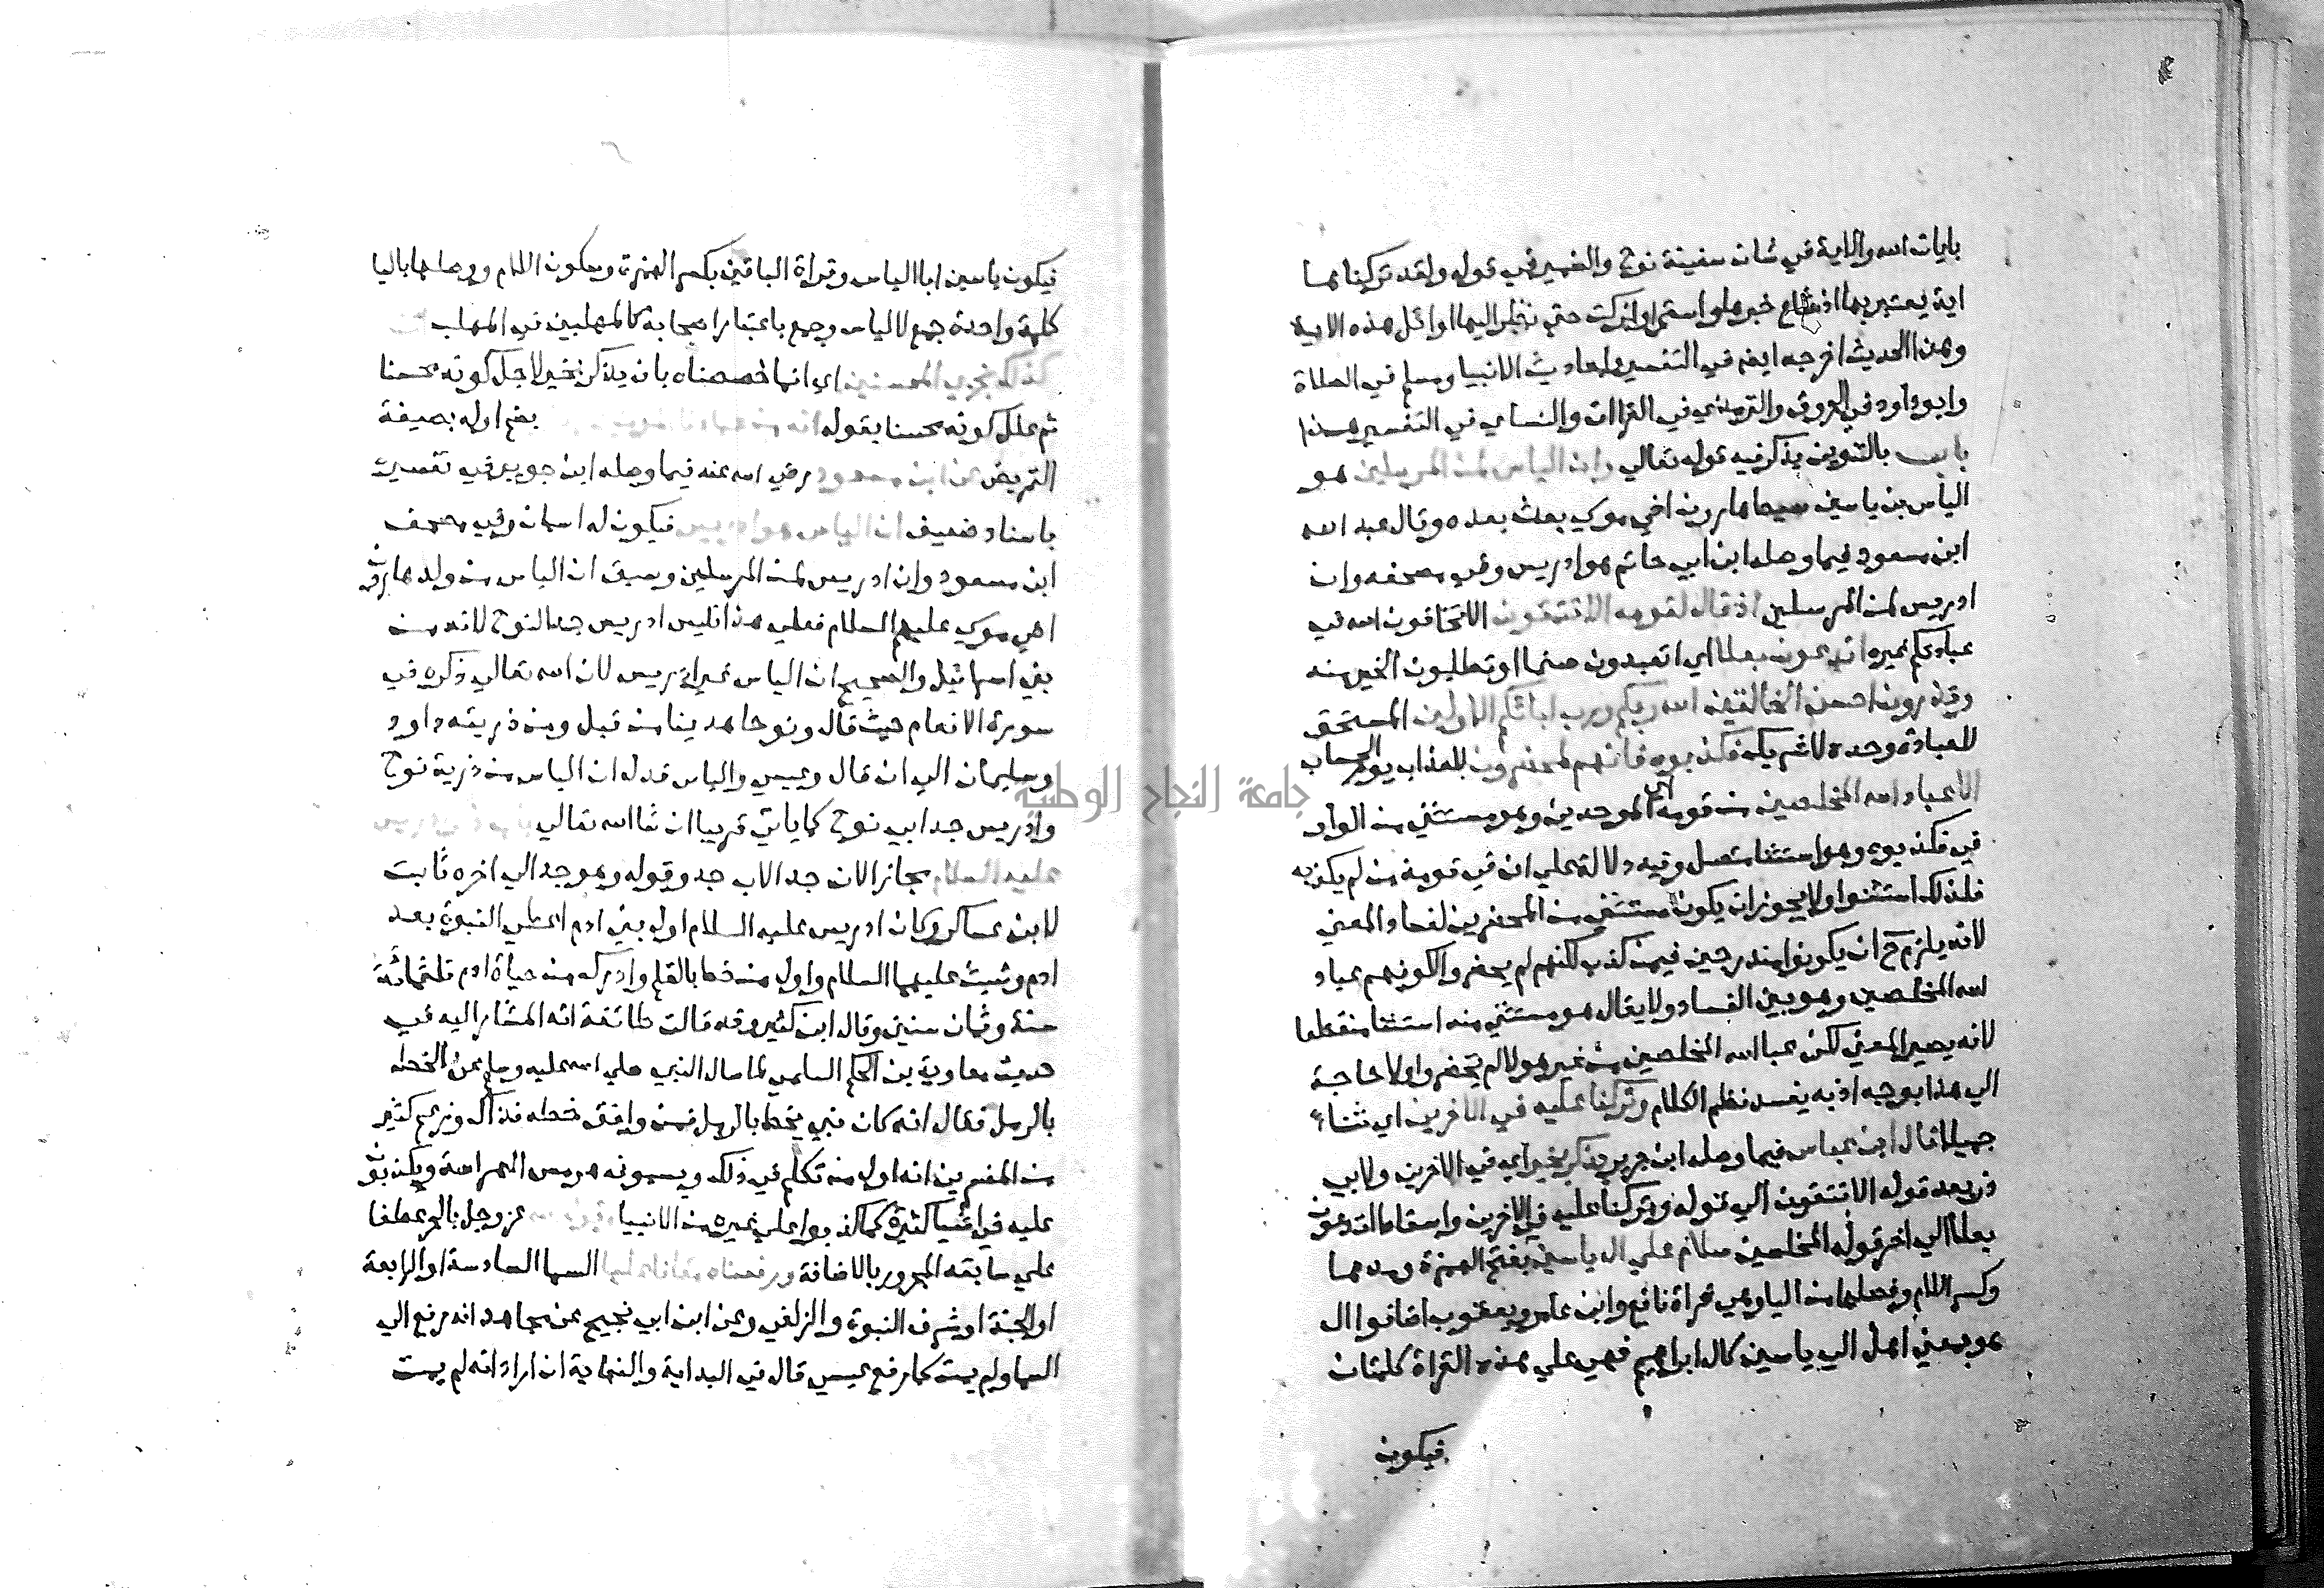 بايات الله والاية في شان سفينة نوح والضمير في قوله ولقد تركناها
اية يعتبر بها اذ شاع خبرها واستمر او تركت حتي نظر اليها اوائل هذه الامة
وهذا الحديث اخرجه ايضا في التفسير واحاديث الانبيا ومسلم في الصلاة
وابو داود في الحروف والترمذي في القراات والنساي في التفسير هذا
باب بالتنوين يذكر فيه قوله تعالي وان الياس لمن المرسلين هو
الياس بن ياسين سبط هارون اخي موسي بعث بعده وقال عبد الله
ابن مسعود فيما وصله ابن ابي حاتم هو ادريس وفي مصحفه وان
ادريس لمن المرسلين اذ قال لقومه الا تتقون الا تخافون الله في
عبادتكم غيره اتدعون بعلا اي اتعبدون صنما او تطلبون الخير منه
وتذرون احسن الخالقين الله ربكم ورب ابائكم الاولين المستحق
للعبادة وحده لا شريك فكذبوه فانهم لمحضرون للعذاب يوم الحساب
الا عباد الله المخلصين من قومه اي الموحدين وهو مستثني من الواو
في فكذبوه وهو استثنا متصل وفيه دلالة علي ان في قومه من لم يكذبه
فلذلك استثنوا ولا يجوز ان يكون مستثني من المحضرين لفساد المعني
لانه يلزم ح ان يكونوا مندرجين فيمن كذب لكنهم لم يحضروا لكونهم عباد
الله المخلصين وهو بين الفساد ولا يقال هو مستثني منه استثنا منقطعا
لانه يصير المعني لكن عباد الله المخلصين من غير هولا لم يحضروا ولا حاجة
الي هذا بوجه اذ به يفسد نظم الكلام وتركنا عليه في الاخرين اي ثناء
جميلا قال ابن عباس فيما وصله ابن جرير يذكر بخير اي في الاخرين ولابي
ذر بعد قوله الا تتقون الي قوله وتركنا عليه في الاخرين واسقاط اتدعون
بعلا الي اخر قوله المخلصين سلام علي ال ياسين بفتح الهمزة ومدها
وكسر اللام وفصلها من اليا وهي قراة نافع وابن عامر ويعقوب اضافوا ال
هو بمعني اهل الي ياسين كال ابراهيم فهي علي هذه القراة كلمتان
فيكون
فيكون ياسين ابا الياس وقراة الباقين بكسر الهمزة وسكون اللام ووصلها باليا
كلمة واحدة جمع لالياس وجمع باعتبار اصحابه كالمهلبين في المهلب
كذلك نجزي المحسنين اي انما خصصناه بان يذكر بخير لاجل كونه محسنا
ثم علل كونه محسنا بقوله انه من عبادنا المومنين بضم اوله بصيغة
التمريض عن ابن مسعود رضي الله عنه فيما وصله ابن جويبر في تفسيره
باسناد ضعيف ان الياس هو ادريس فيكون له اسمان وفي مصحف
ابن مسعود وان ادريس لمن المرسلين وسبق ان الياس من ولد هارون
اخي موسي عليهم السلام فعلي هذا فليس ادريس جدا لنوح لانه من
بني اسرائيل والصحيح ان الياس غير ادريس لان الله تعالي ذكره في
سورة الانعام حيث قال ونوحا هدينا من قبل ومن ذريته داود
وسليمان الي ان قال وعيسي والياس فدل ان الياس من ذرية نوح
وادريس جد ابي نوح كما ياتي قريبا ان شا الله تعالي
عليه السلام مجازا لان جد الاب جد وقوله وهو جد الي اخره ثابت
لابن عساكر وكان ادريس عليه السلام اول بني ادم اعطي النبوة بعد
ادم وشيث عليهما السلام واول من خط بالقلم وادرك من حياة ادم ثلثمائة
سنة وثمان سنين وقال ابن كثير وقد قالت طائفة انه المشار اليه في
حديث معاوية بن الحكم السلمي لما سال النبي صلي الله عليه وسلم عن الخط
بالرمل فقال انه كان نبي يخط بالرمل فمن وافق خطه فذاك وزعم كثير
من المفسرين انه اول من تكلم في ذلك ويسمونه هرمس الهرامسة ويكذبون
عليه في اشيا كثيرة كما كذبوا علي غيره من الانبيا عز وجل بالجر عطفا
علي سابقه المجرور بالاضافة ورفعناه مكانا عليا السما السادسة او الرابعة
او الجنة او شرف النبوة والزلفي وعن ابن ابي نجيح عن مجاهد انه رفع الي
السما ولم يمت كما رفع عيسي قال في البداية والنهاية ان اراد انه لم يمت
جامعة النجاح الوطنية